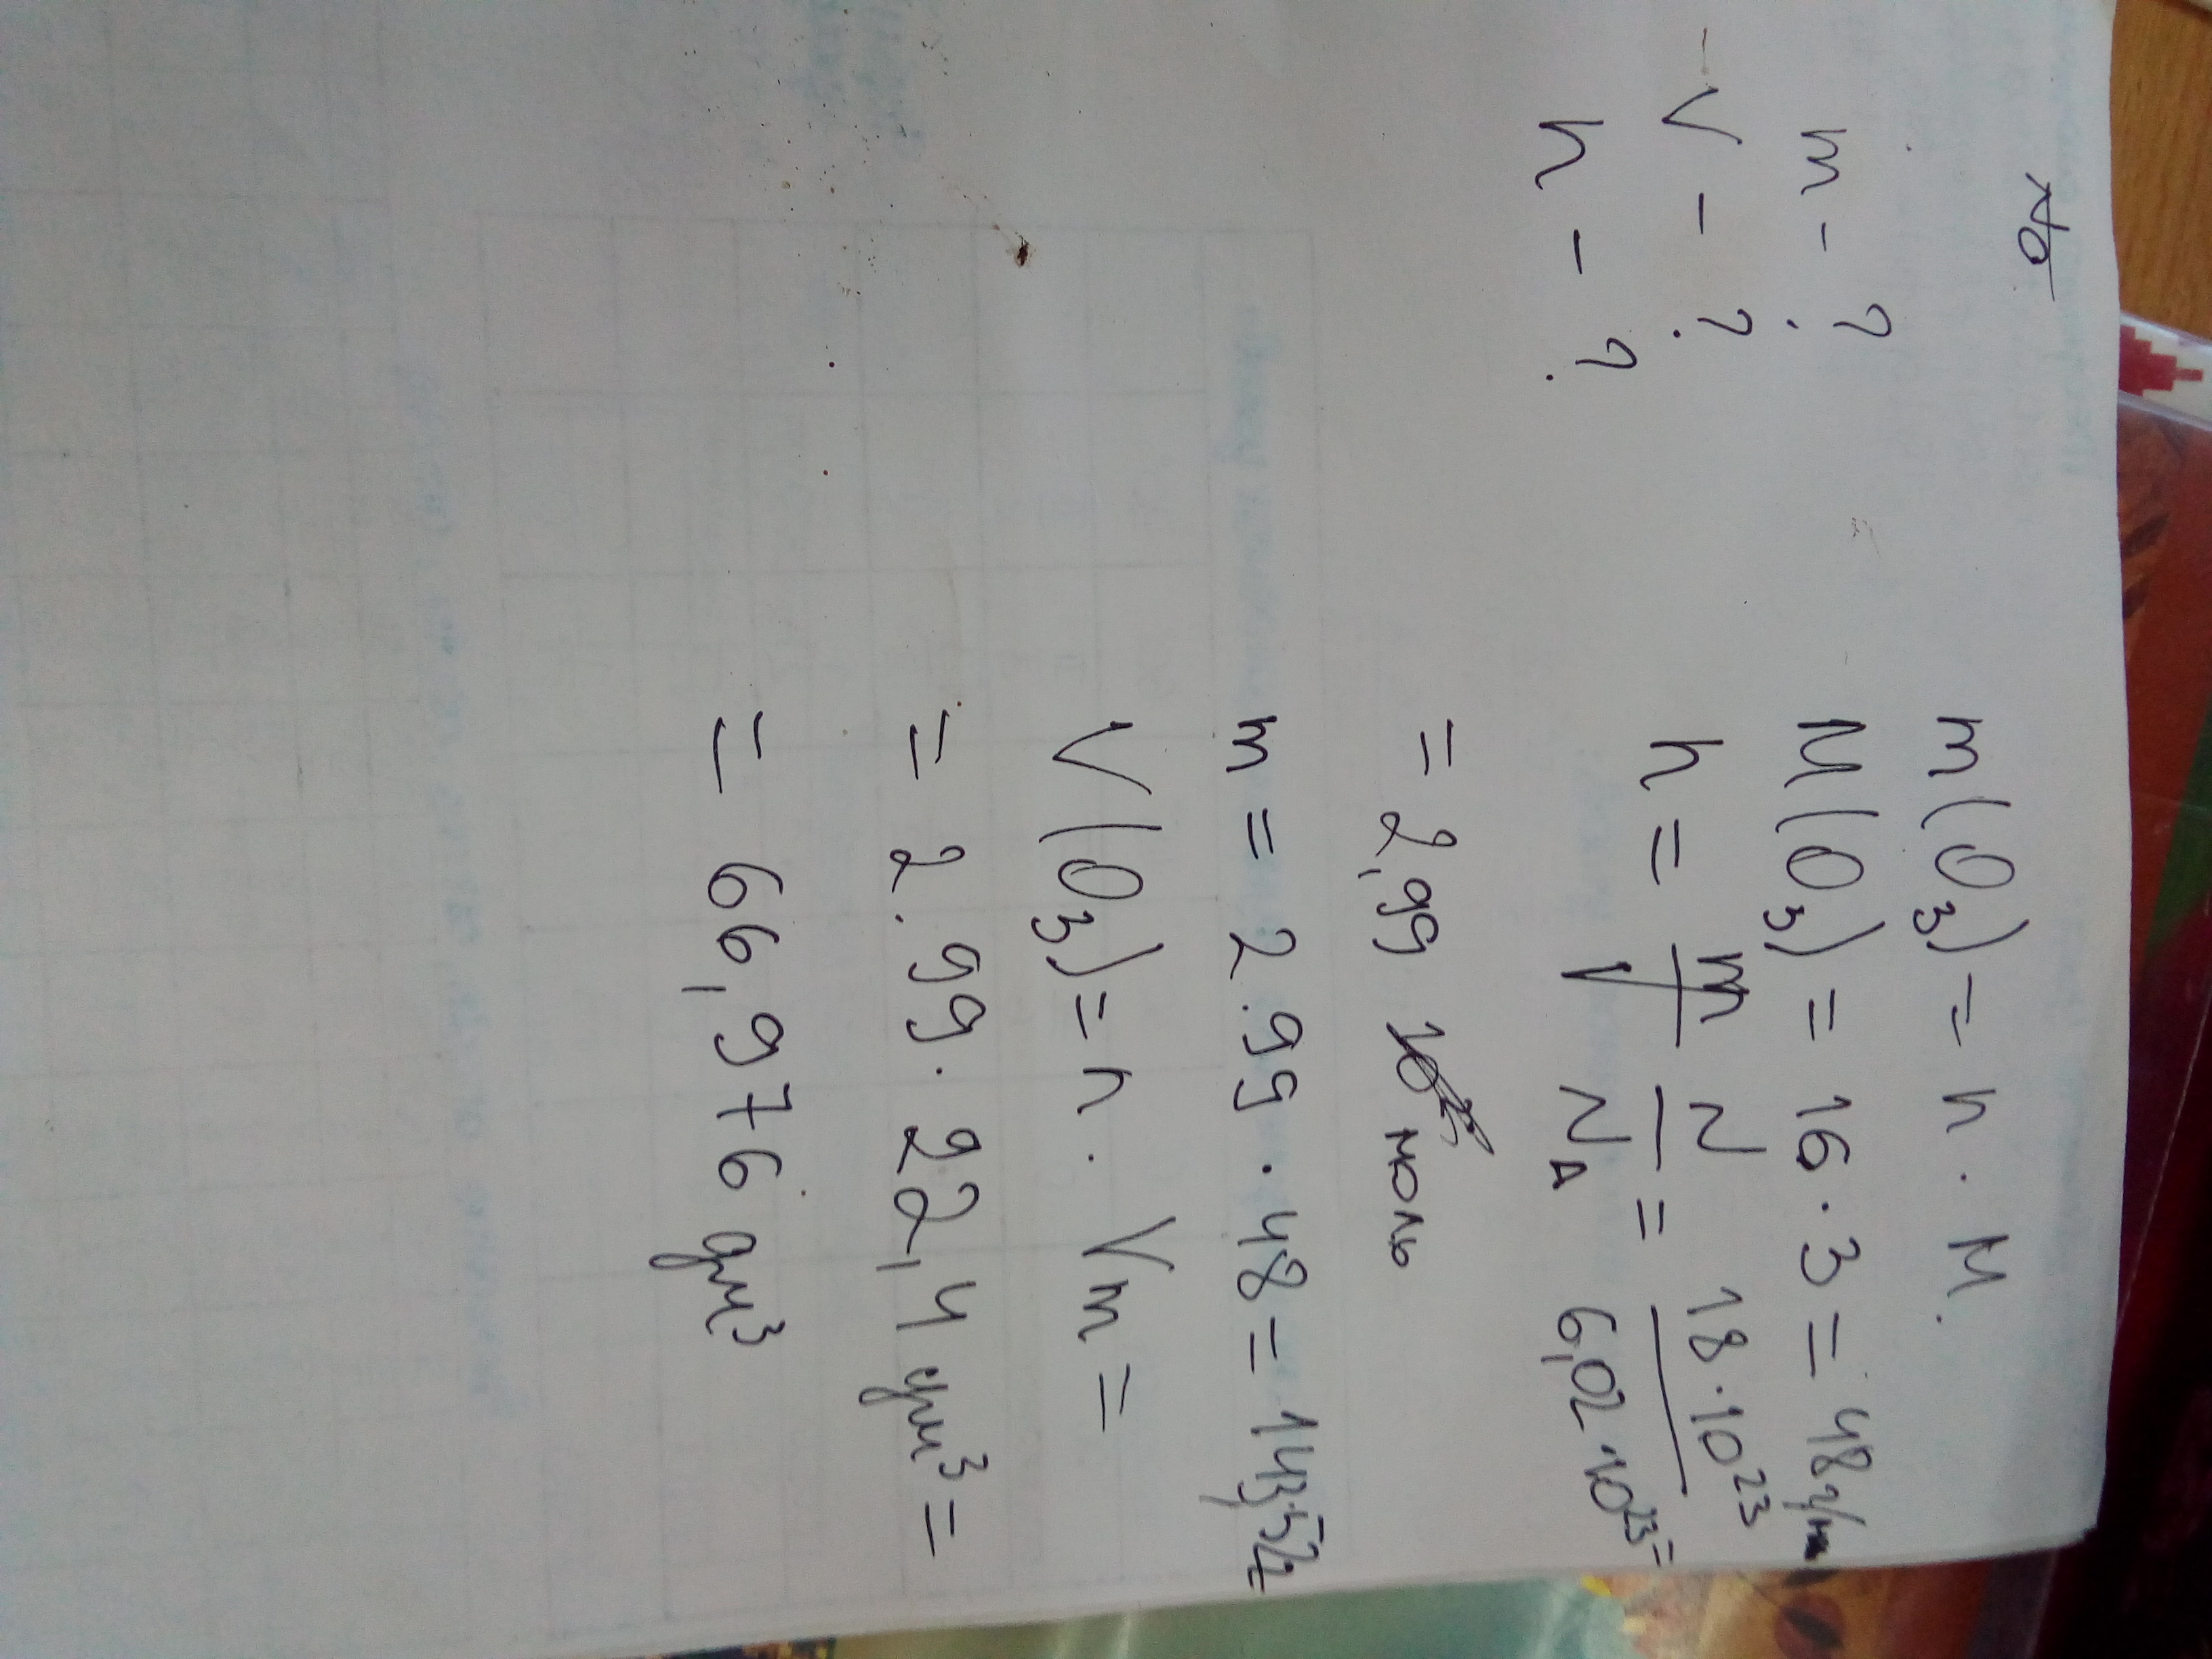 m - ?
V - ?
n - ?
m(O₃) = n · M.
M(O₃) = 16 · 3 = 48 г/м
n = m/V N/Nᴀ = 18·10²³/6,02·10²³ =
= 2,99 моль
m = 2.99 · 48 = 143,52
V(O₃) = n · Vm =
= 2.99 · 22,4 дм³ =
= 66,976 дм³